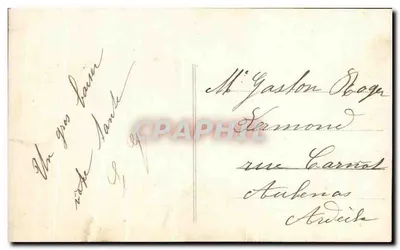 Un gros baiser
votre Tante
Mr Gaston Roger
Kermond
rue Carnot
Aubenas
Ardèche
CPAPHIL